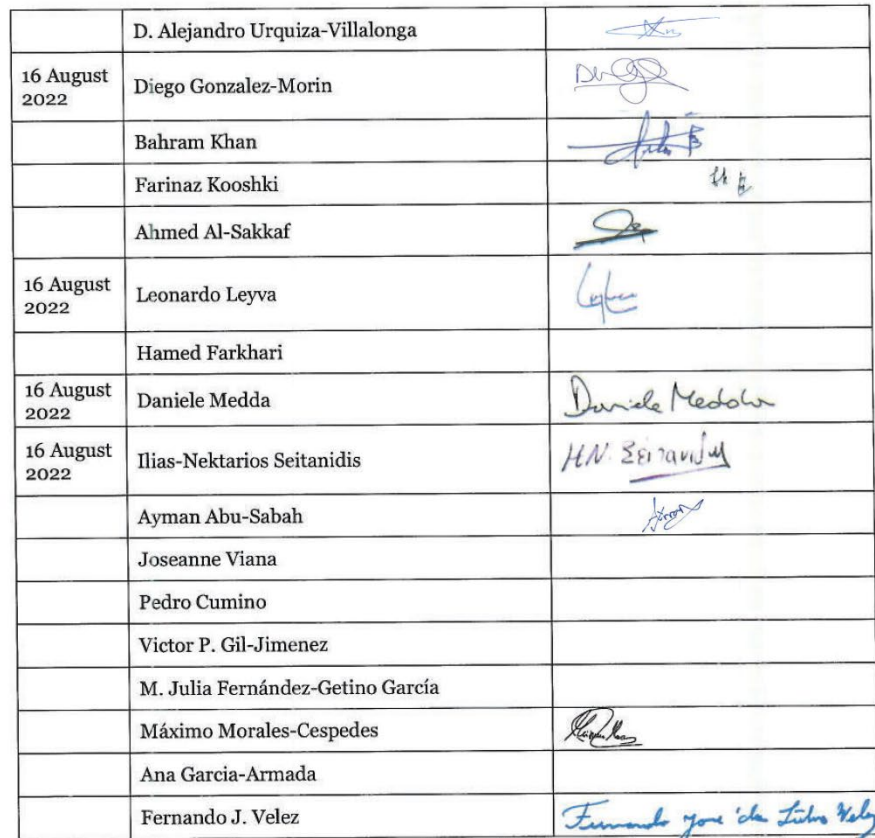 D. Alejandro Urquiza-Villalonga
16 August
2022
Diego Gonzalez-Morin
Bahram Khan
Farinaz Kooshki
Ahmed Al-Sakkaf
16 August
2022
Leonardo Leyva
Hamed Farkhari
16 August
2022
Daniele Medda Daniele Medda
16 August
2022
Ilias-Nektarios Seitanidis ΗΝ. Σεϊτανίδης
Ayman Abu-Sabah
Joseanne Viana
Pedro Cumino
Victor P. Gil-Jimenez
M. Julia Fernández-Getino García
Máximo Morales-Cespedes
Ana Garcia-Armada
Fernando J. Velez Fernando José da Silva Velez